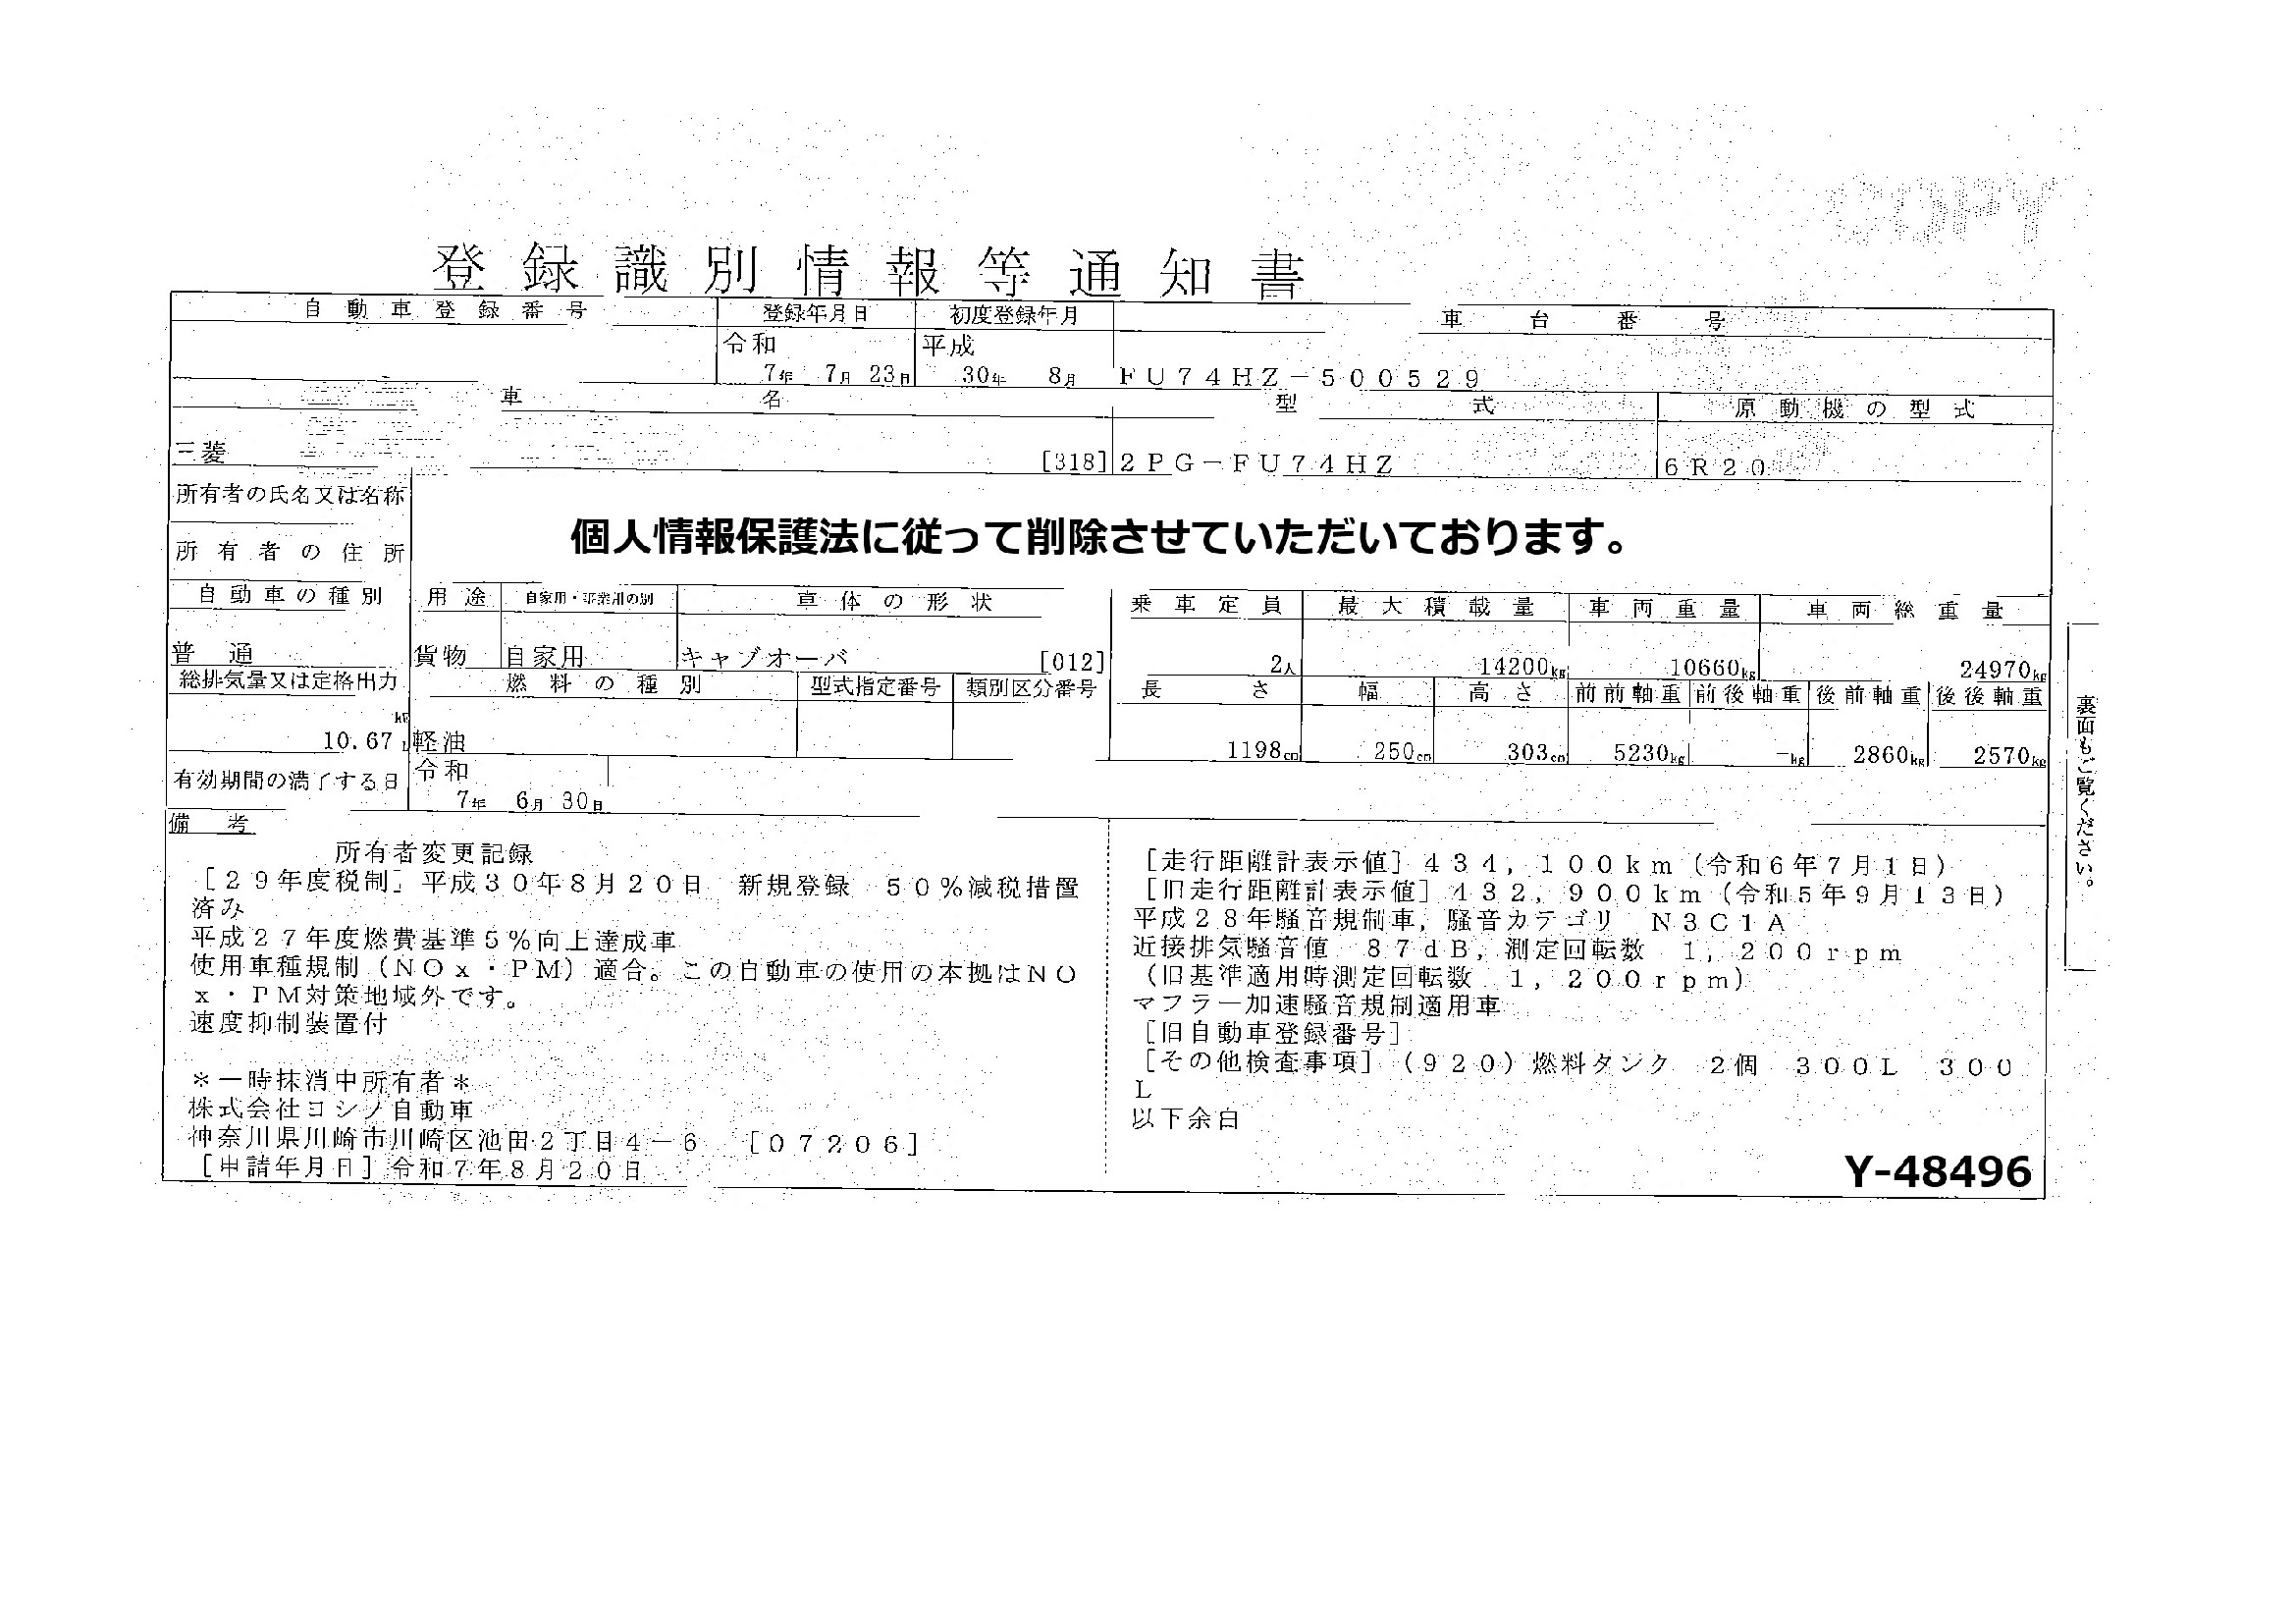 COPY
登録識別情報等通知書
自動車登録番号 登録年月日 初度登録年月 車台番号
令和 平成
7年 7月 23日 30年 8月 FU74HZ-500529
車名 型式 原動機の型式
三菱 [318] 2PG-FU74HZ 6R20
所有者の氏名又は名称
個人情報保護法に従って削除させていただいております。
所有者の住所
自動車の種別 用途 自家用・事業用の別 車体の形状 乗車定員 最大積載量 車両重量 車両総重量
普通 貨物 自家用 キャブオーバ [012] 2人 14200kg 10660kg 24970kg
総排気量又は定格出力 燃料の種別 型式指定番号 類別区分番号 長さ 幅 高さ 前前軸重 前後軸重 後前軸重 後後軸重
kW
10.67 L 軽油 1198cm 250cm 303cm 5230kg -kg 2860kg 2570kg
有効期間の満了する日 令和
7年 6月 30日
裏面もご覧ください。
備考
所有者変更記録
[29年度税制]平成30年8月20日 新規登録 50%減税措置
済み
平成27年度燃費基準5%向上達成車
使用車種規制(NOx・PM)適合。この自動車の使用の本拠はNO
x・PM対策地域外です。
速度抑制装置付
*一時抹消中所有者*
株式会社ヨシノ自動車
神奈川県川崎市川崎区池田2丁目4-6 [07206]
[申請年月日]令和7年8月20日
[走行距離計表示値]434,100km(令和6年7月1日)
[旧走行距離計表示値]432,900km(令和5年9月13日)
平成28年騒音規制車,騒音カテゴリ N3C1A
近接排気騒音値 87dB,測定回転数 1,200rpm
(旧基準適用時測定回転数 1,200rpm)
マフラー加速騒音規制適用車
[旧自動車登録番号]
[その他検査事項](920)燃料タンク 2個 300L 300
L
以下余白
Y-48496